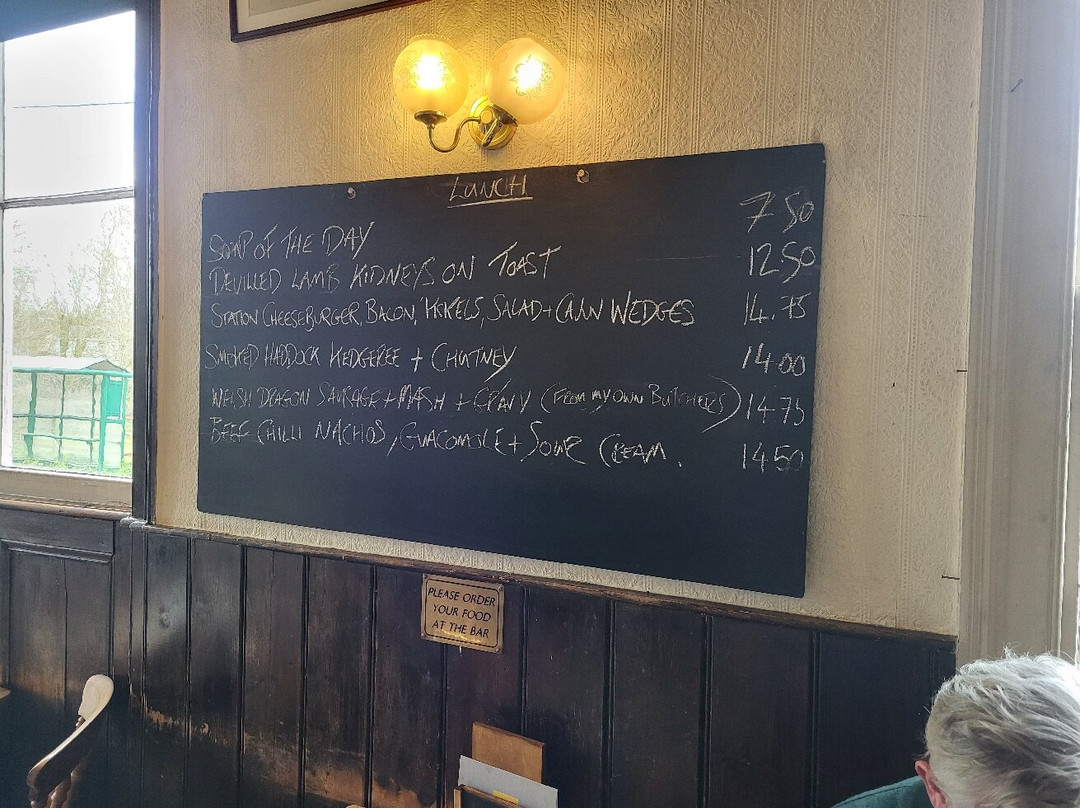 LUNCH
SOUP OF THE DAY 7 50
DEVILLED LAMB KIDNEYS ON TOAST 12 50
STATION CHEESEBURGER, BACON, PICKELS, SALAD + CAJUN WEDGES 14.75
SMOKED HADDOCK KEDGEREE + CHUTNEY 14 00
WELSH DRAGON SAUSAGE + MASH + GRAVY (FROM MY OWN BUTCHERS) 14 75
BEEF CHILLI NACHOS, GUACOMOLE + SOUR CREAM. 14 50
PLEASE ORDER
YOUR FOOD
AT THE BAR